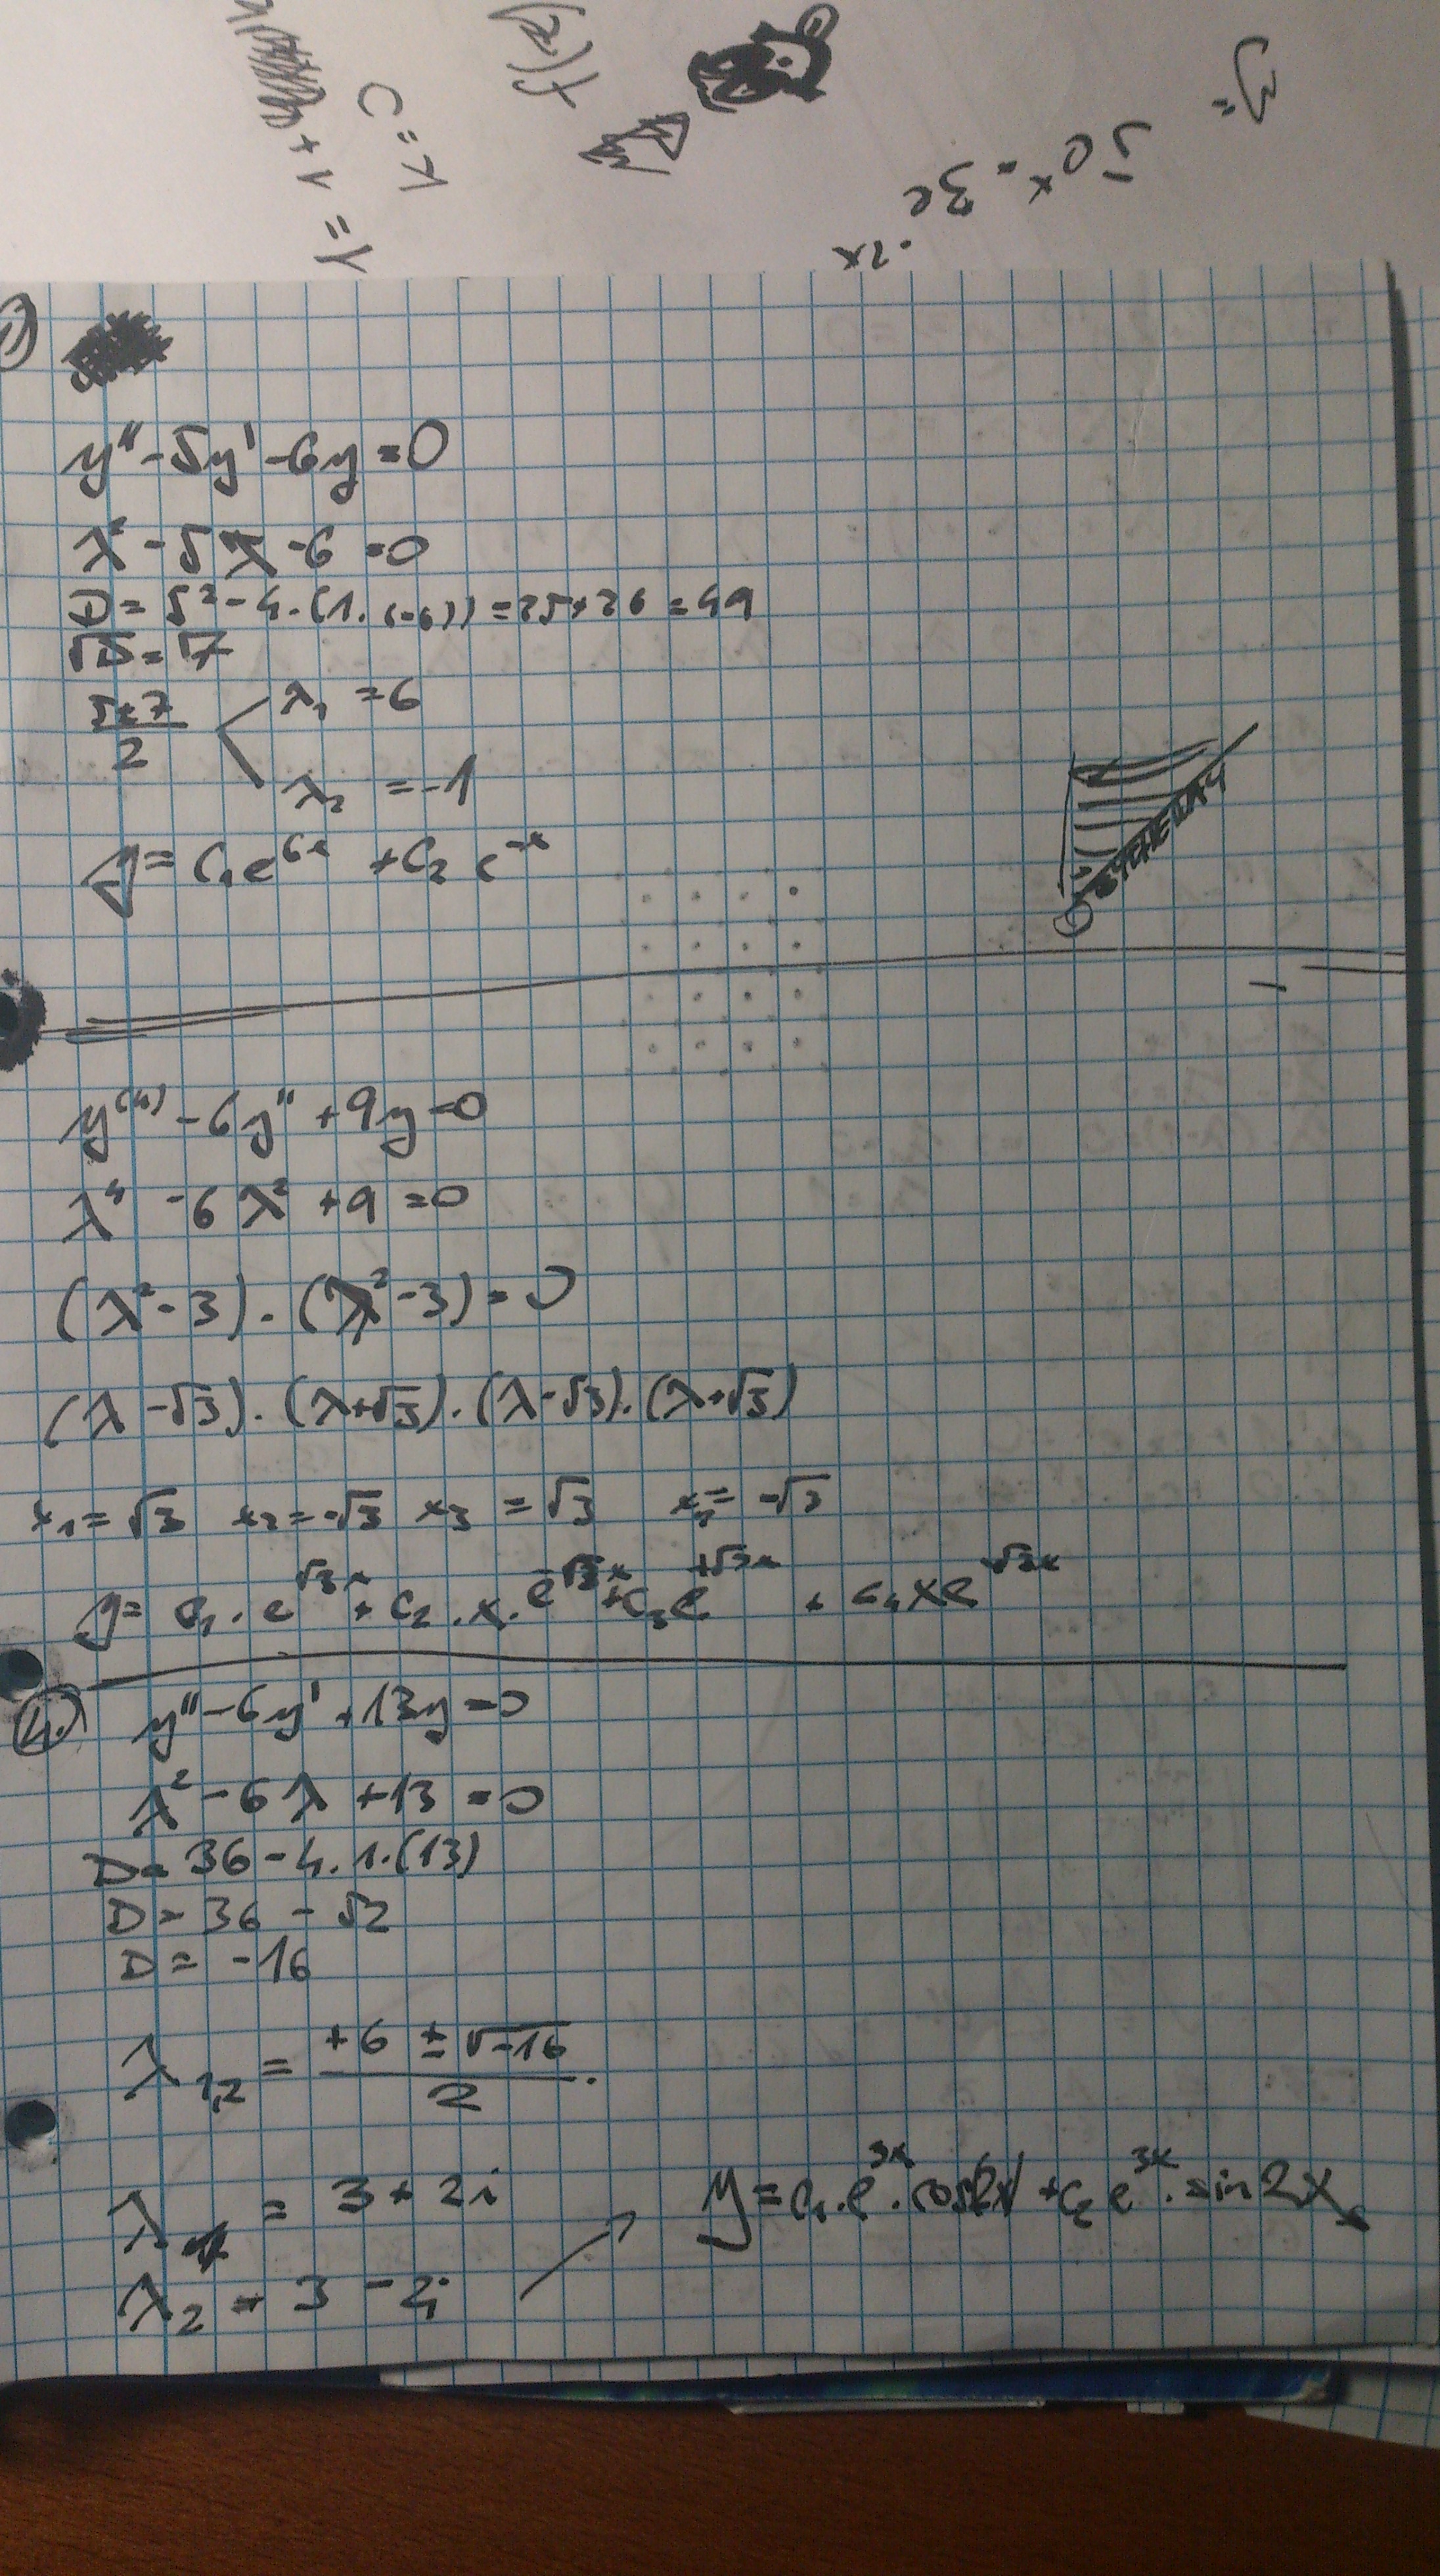 1)
y'' - 5y' - 6y = 0
λ² - 5λ - 6 = 0
D = 5² - 4.(1.(-6)) = 25+26 = 49
√D = 7
5±7 / 2
λ₁ = 6
λ₂ = -1
y = C₁e⁶ˣ + C₂ e⁻ˣ
y⁽⁴⁾ - 6y'' + 9y = 0
λ⁴ - 6λ² + 9 = 0
(λ² - 3).(λ² - 3) = 0
(λ - √3).(λ+√3).(λ-√3).(λ+√3)
x₁ = √3 x₂ = -√3 x₃ = √3 x₄ = -√3
y = c₁.e^√3x + c₂.x.e^√3x + c₃e^-√3x + c₄xe^-√3x
4.)
y'' - 6y' + 13y = 0
λ² - 6λ + 13 = 0
D = 36 - 4.1.(13)
D = 36 - 52
D = -16
λ₁,₂ = +6 ± √-16 / 2
λ₁ = 3 + 2i
λ₂ = 3 - 2i
y = c₁.e³ˣ.cos2x + c₂e³ˣ.sin2x
1 = 1 +
k = 0
f(x)